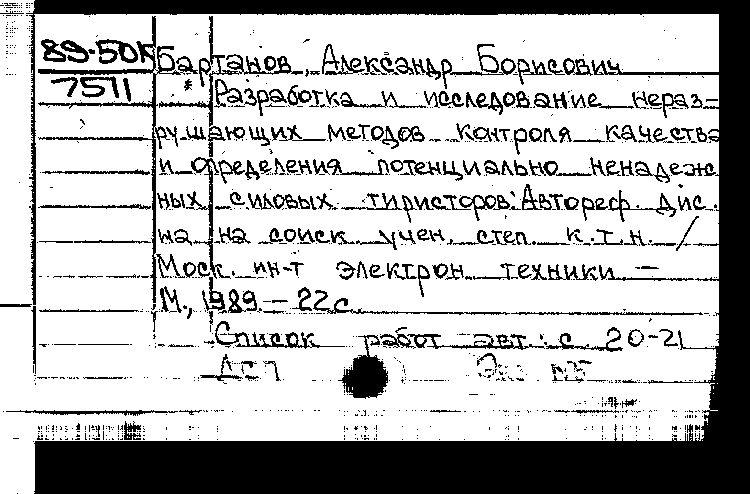 89-50К Бартанов, Александр Борисович
7511 * Разработка и исследование нераз-
рушающих методов контроля качества
и определения потенциально ненадеж
ных силовых тиристоров: Автореф. Дис.
на на соиск. учен. степ. к.т.н. /
Моск. ин-т электрон. техники —
М., 1989. — 22 с.
Список работ авт.: с. 20-21
ДСП